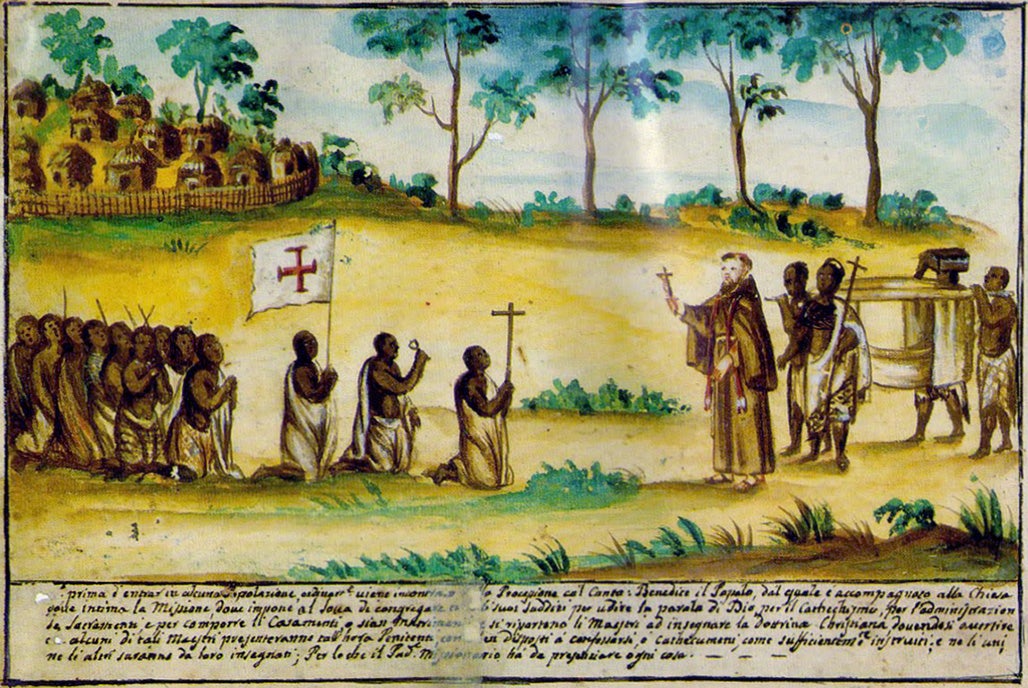 prima d'entrar in alcuna Popolazione, ordinar.te viene incontrato Processione col Canto: Benedice il Popolo, dal quale è accompagnato alla Chiesa
intima la Missione dove impone al Sova di congregare suoi Sudditi per udire la parola di Dio, per il Cathechismo, per l'administrazion
Sacramenti, e per comporre li Casamenti, o sian Matrimonj si riportano li Maestri ad insegnare la Dottrina Christiana dovendosi avertire
alcuni di tali Maestri presenteranno tal'hora Penitenti disposti à confessarsi, e Cathecumeni, come sufficientem.te instruiti; e nè li uni,
nè li altri saranno da loro insegnati; Per lo che il Pad.e Missionario hà da ogni cosa.